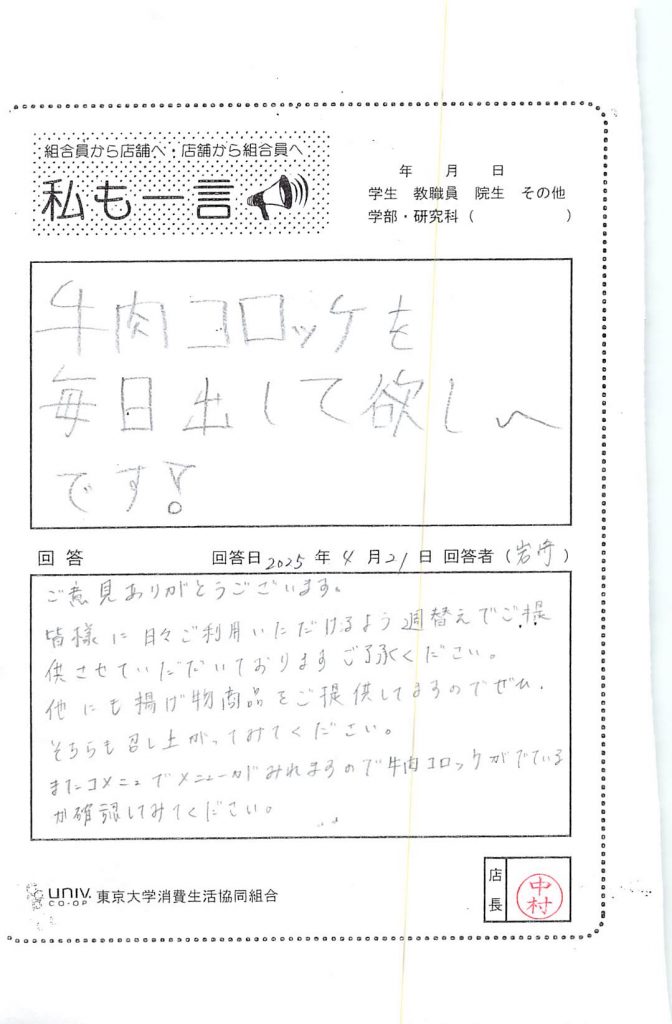 組合員から店舗へ・店舗から組合員へ
私も一言
年 月 日
学生 教職員 院生 その他
学部・研究科( )
牛肉コロッケを
毎日出して欲しい
です!
回答 回答日 2025 年 4 月 21 日 回答者(岩崎)
ご意見ありがとうございます。
皆様に日々ご利用いただけるよう週替えでご提
供させていただいておりますご了承ください。
他にも揚げ物商品をご提供してますのでぜひ、
そちらも召し上がってみてください。
またコメニュでメニューがみれますので牛肉コロッケがでている
か確認してみてください。
UNIV. CO-OP 東京大学消費生活協同組合
店長 中村